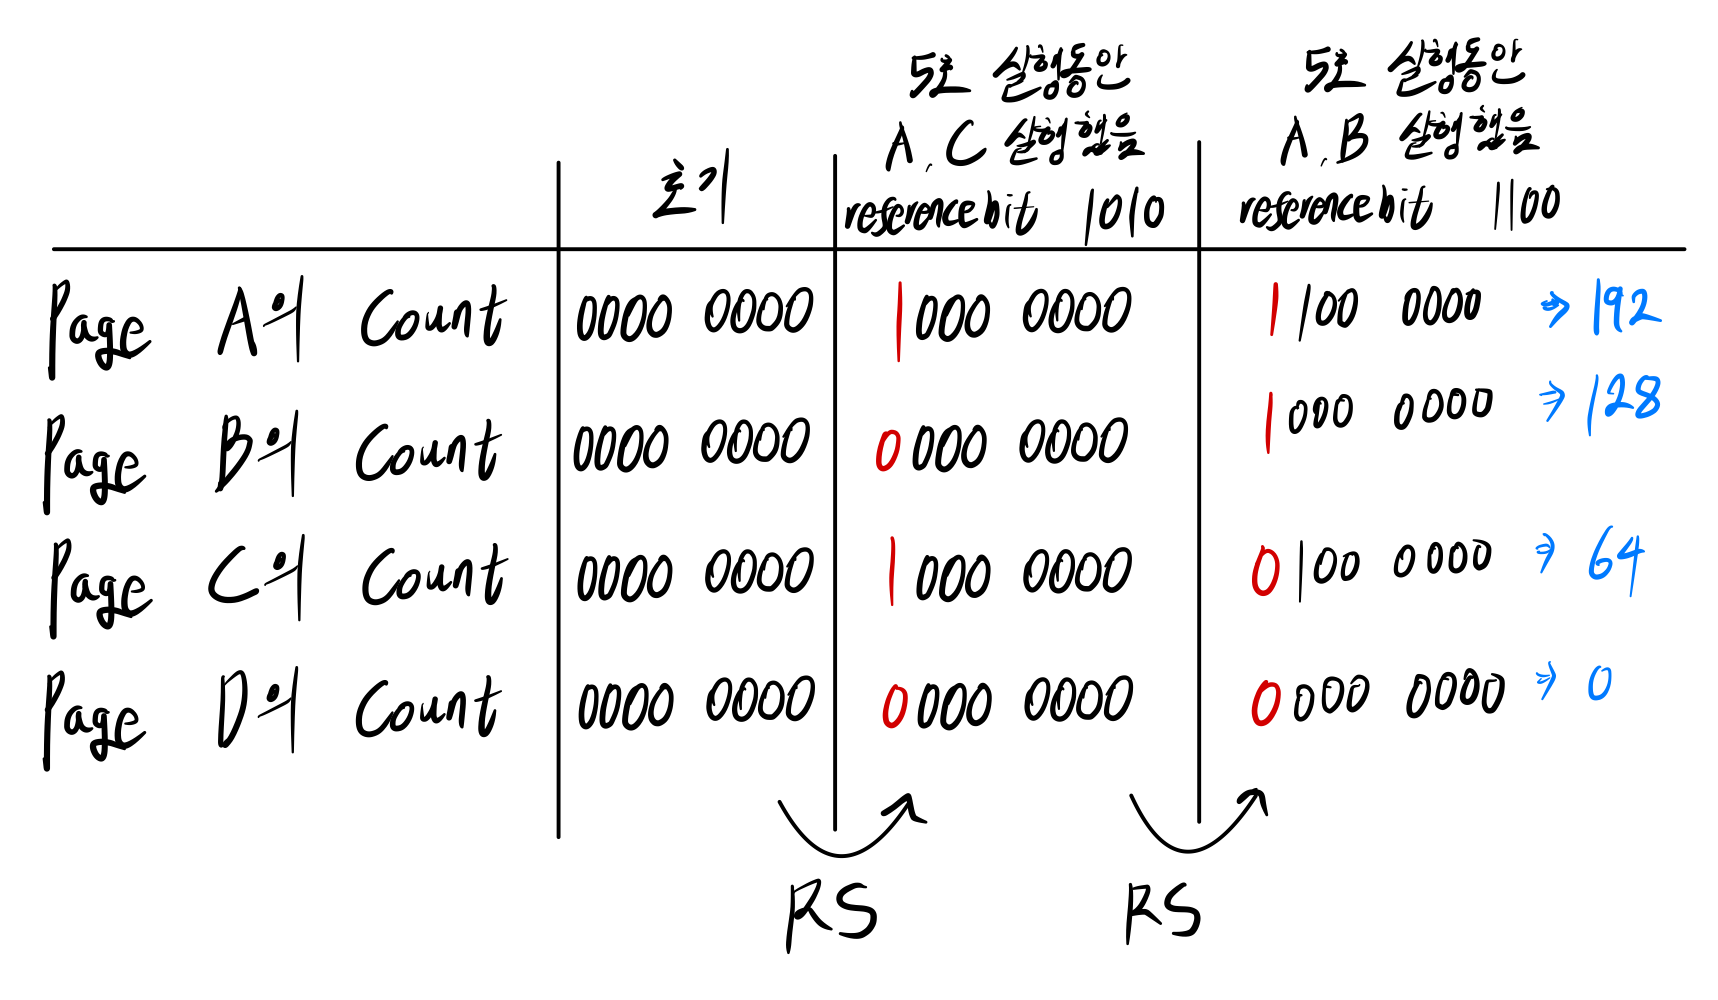 초기
5초 실행동안
A, C 실행했음
reference bit 1010
5초 실행동안
A, B 실행했음
reference bit 1100
Page A의 Count 0000 0000 1000 0000 1100 0000 ⇒ 192
Page B의 Count 0000 0000 0000 0000 1000 0000 ⇒ 128
Page C의 Count 0000 0000 1000 0000 0100 0000 ⇒ 64
Page D의 Count 0000 0000 0000 0000 0000 0000 ⇒ 0
RS RS